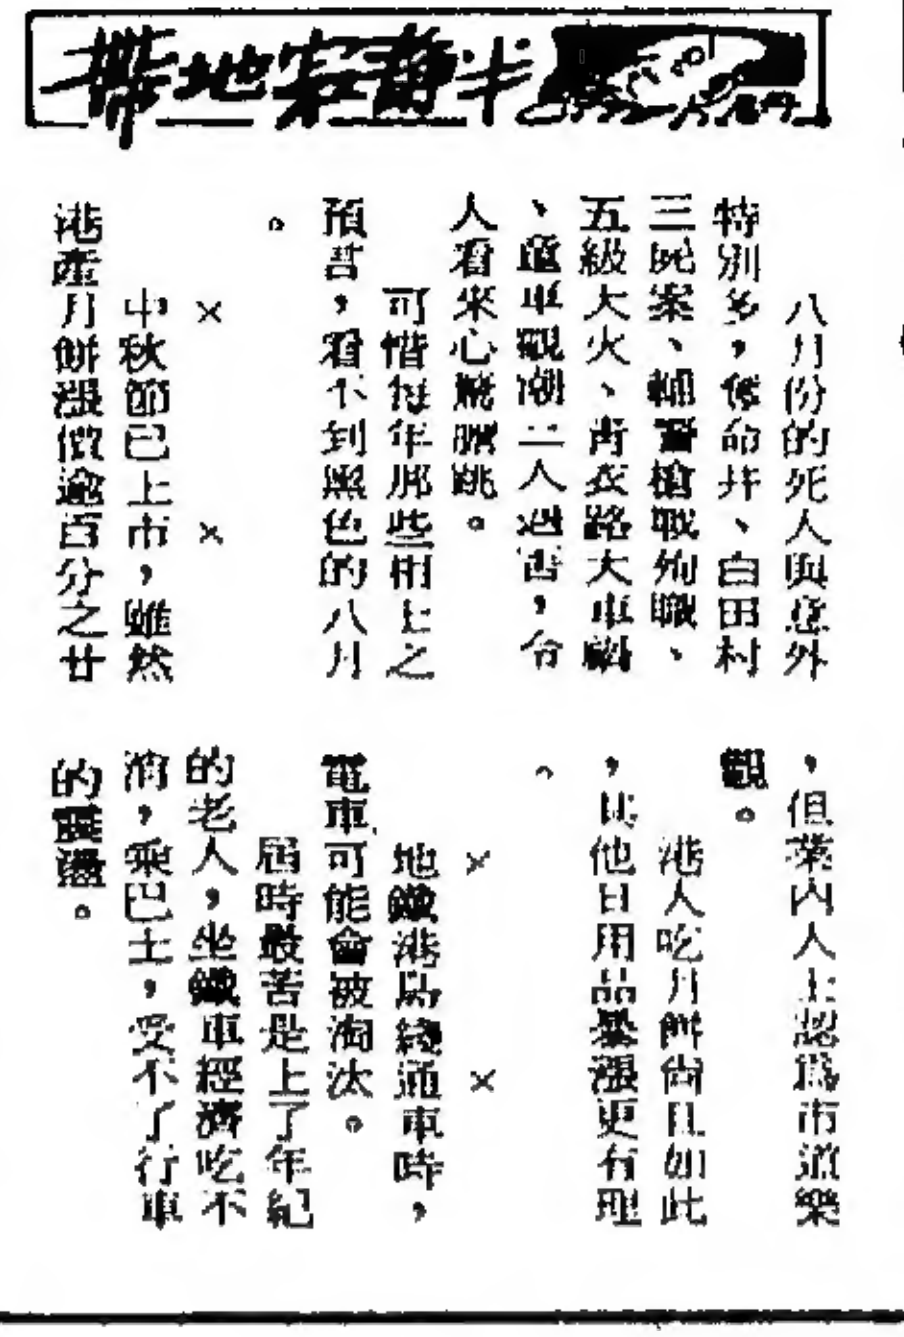 半靜寂地帶
八月份的死人與意外
特別多，奪命井、白田村
三屍案、輔警槍戰殉職、
五級大火、青衣路大車禍
、車觀潮二人遇害，令
人看來心驚膽跳。
可惜每年那些相士之
預言，看不到黑色的八月
。
× ×
中秋節已上市，雖然
港產月餅漲價逾百分之廿
，但業內人士認爲市道樂
觀。
港人吃月餅尚且如此
，其他日用品暴漲更有理
。
× ×
地鐵港島綫通車時，
電車可能會被淘汰。
屆時最苦是上了年紀
的老人，坐鐵車經濟吃不
消，乘巴士，受不了行車
的震盪。